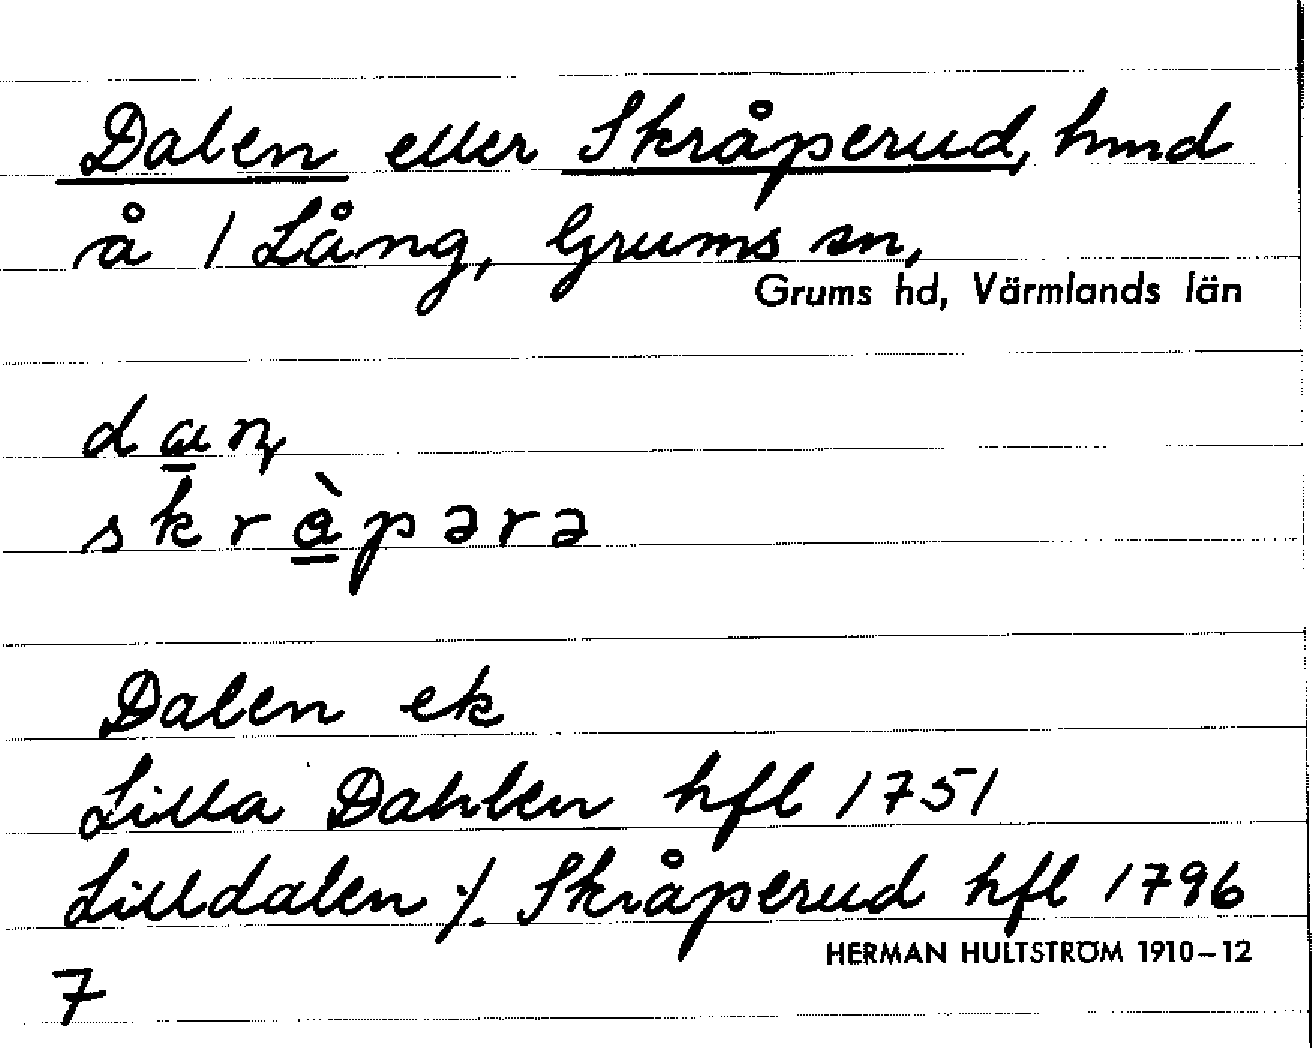 Dalen eller Skråperud, hmd
å 1 Lång, Grums sn,
Grums hd, Värmlands län
daɳ
skràpərə
Dalen ek
Lilla Dahlen hfl 1751
Lilldalen ./. Skråperud hfl 1796
HERMAN HULTSTRÖM 1910–12
7